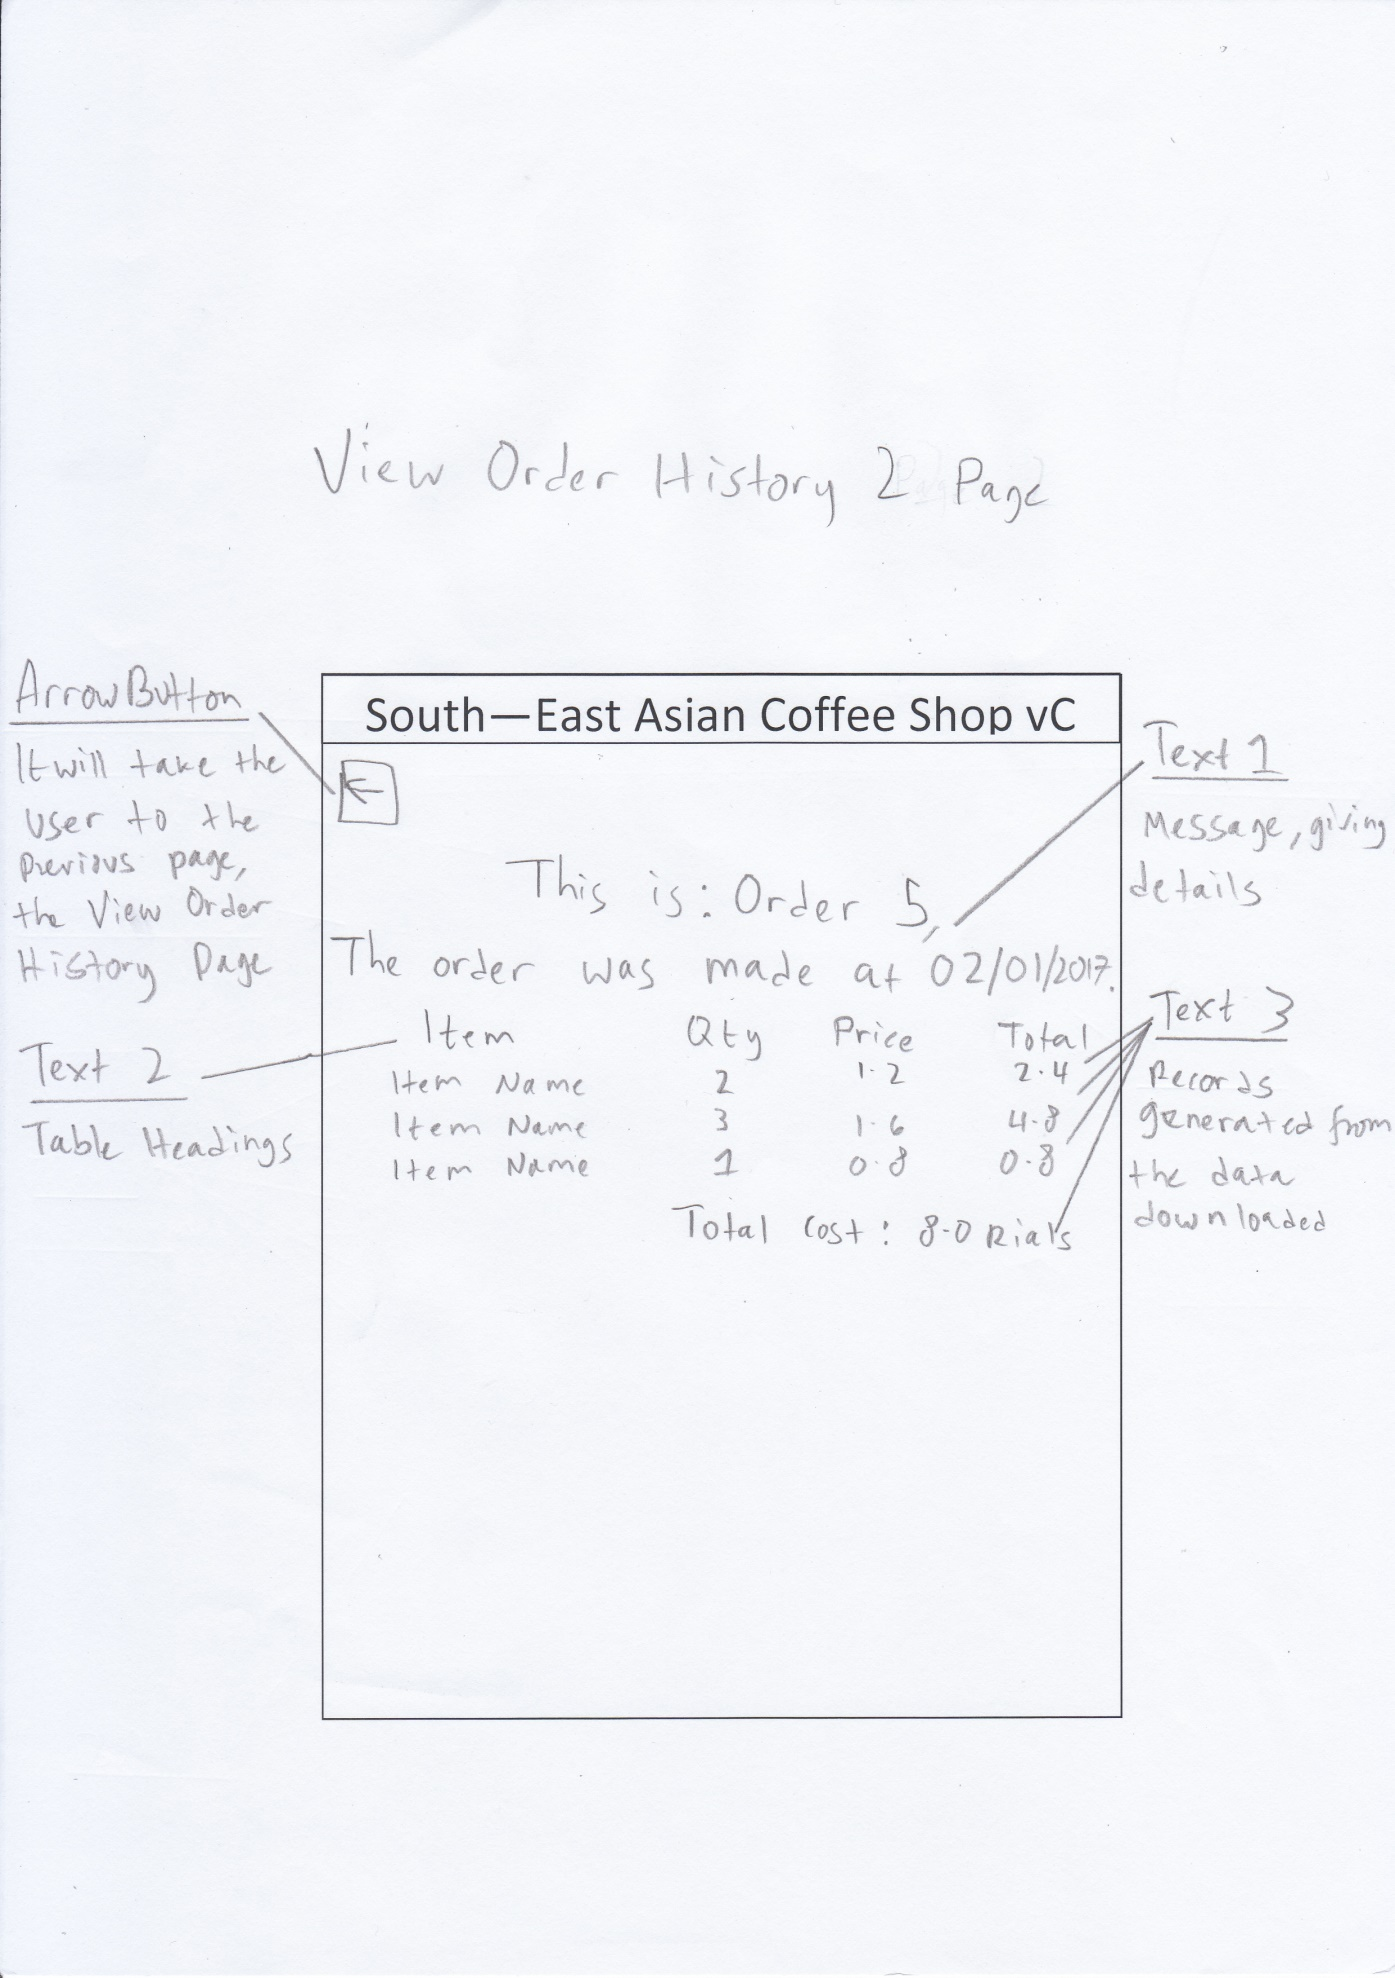 View Order History 2 Page
ArrowButton
It will take the
user to the
previous page,
the View Order
History Page
Text 2
Table Headings
South—East Asian Coffee Shop vC
←
This is: Order 5,
The order was made at 02/01/2017.
Item Qty Price Total
Item Name 2 1.2 2.4
Item Name 3 1.6 4.8
Item Name 1 0.8 0.8
Total Cost: 8.0 Rials
Text 1
Message, giving
details
Text 3
Records
generated from
the data
downloaded